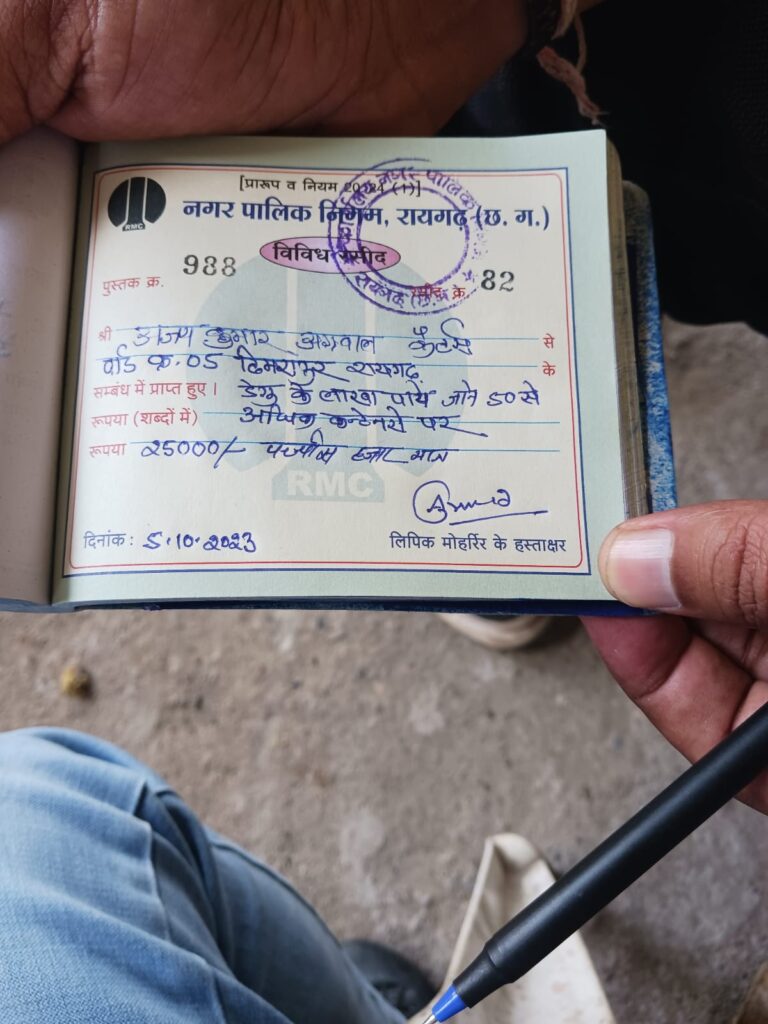 [प्रारूप व नियम 2024 (1)]
नगर पालिक निगम, रायगढ़ (छ. ग.)
RMC
विविध रसीद
पुस्तक क्र. 988
रसीद क्रं. 82
श्री अजय कुमार अग्रवाल कैटर्स से
वार्ड क्र. 05 ढिमरापुर रायगढ़ के
सम्बंध में प्राप्त हुए। डेंगू के लाखा पाये जाने 50 से
रूपया (शब्दों में) अधिक कन्टेनरो पर
रूपया 25000/- पच्चीस हजार मात्र
RMC
दिनांक: 5.10.2023
लिपिक मोहर्रिर के हस्ताक्षर